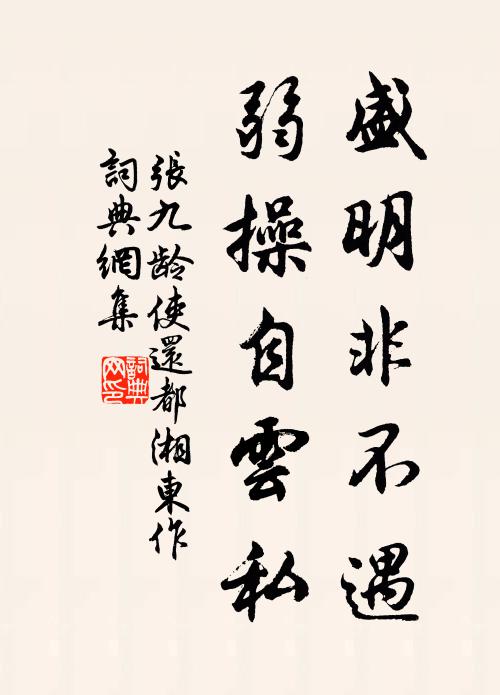 盛明非不遇
弱操自雲私
張九齡使還都湘東作
詞典網集
詞典網印